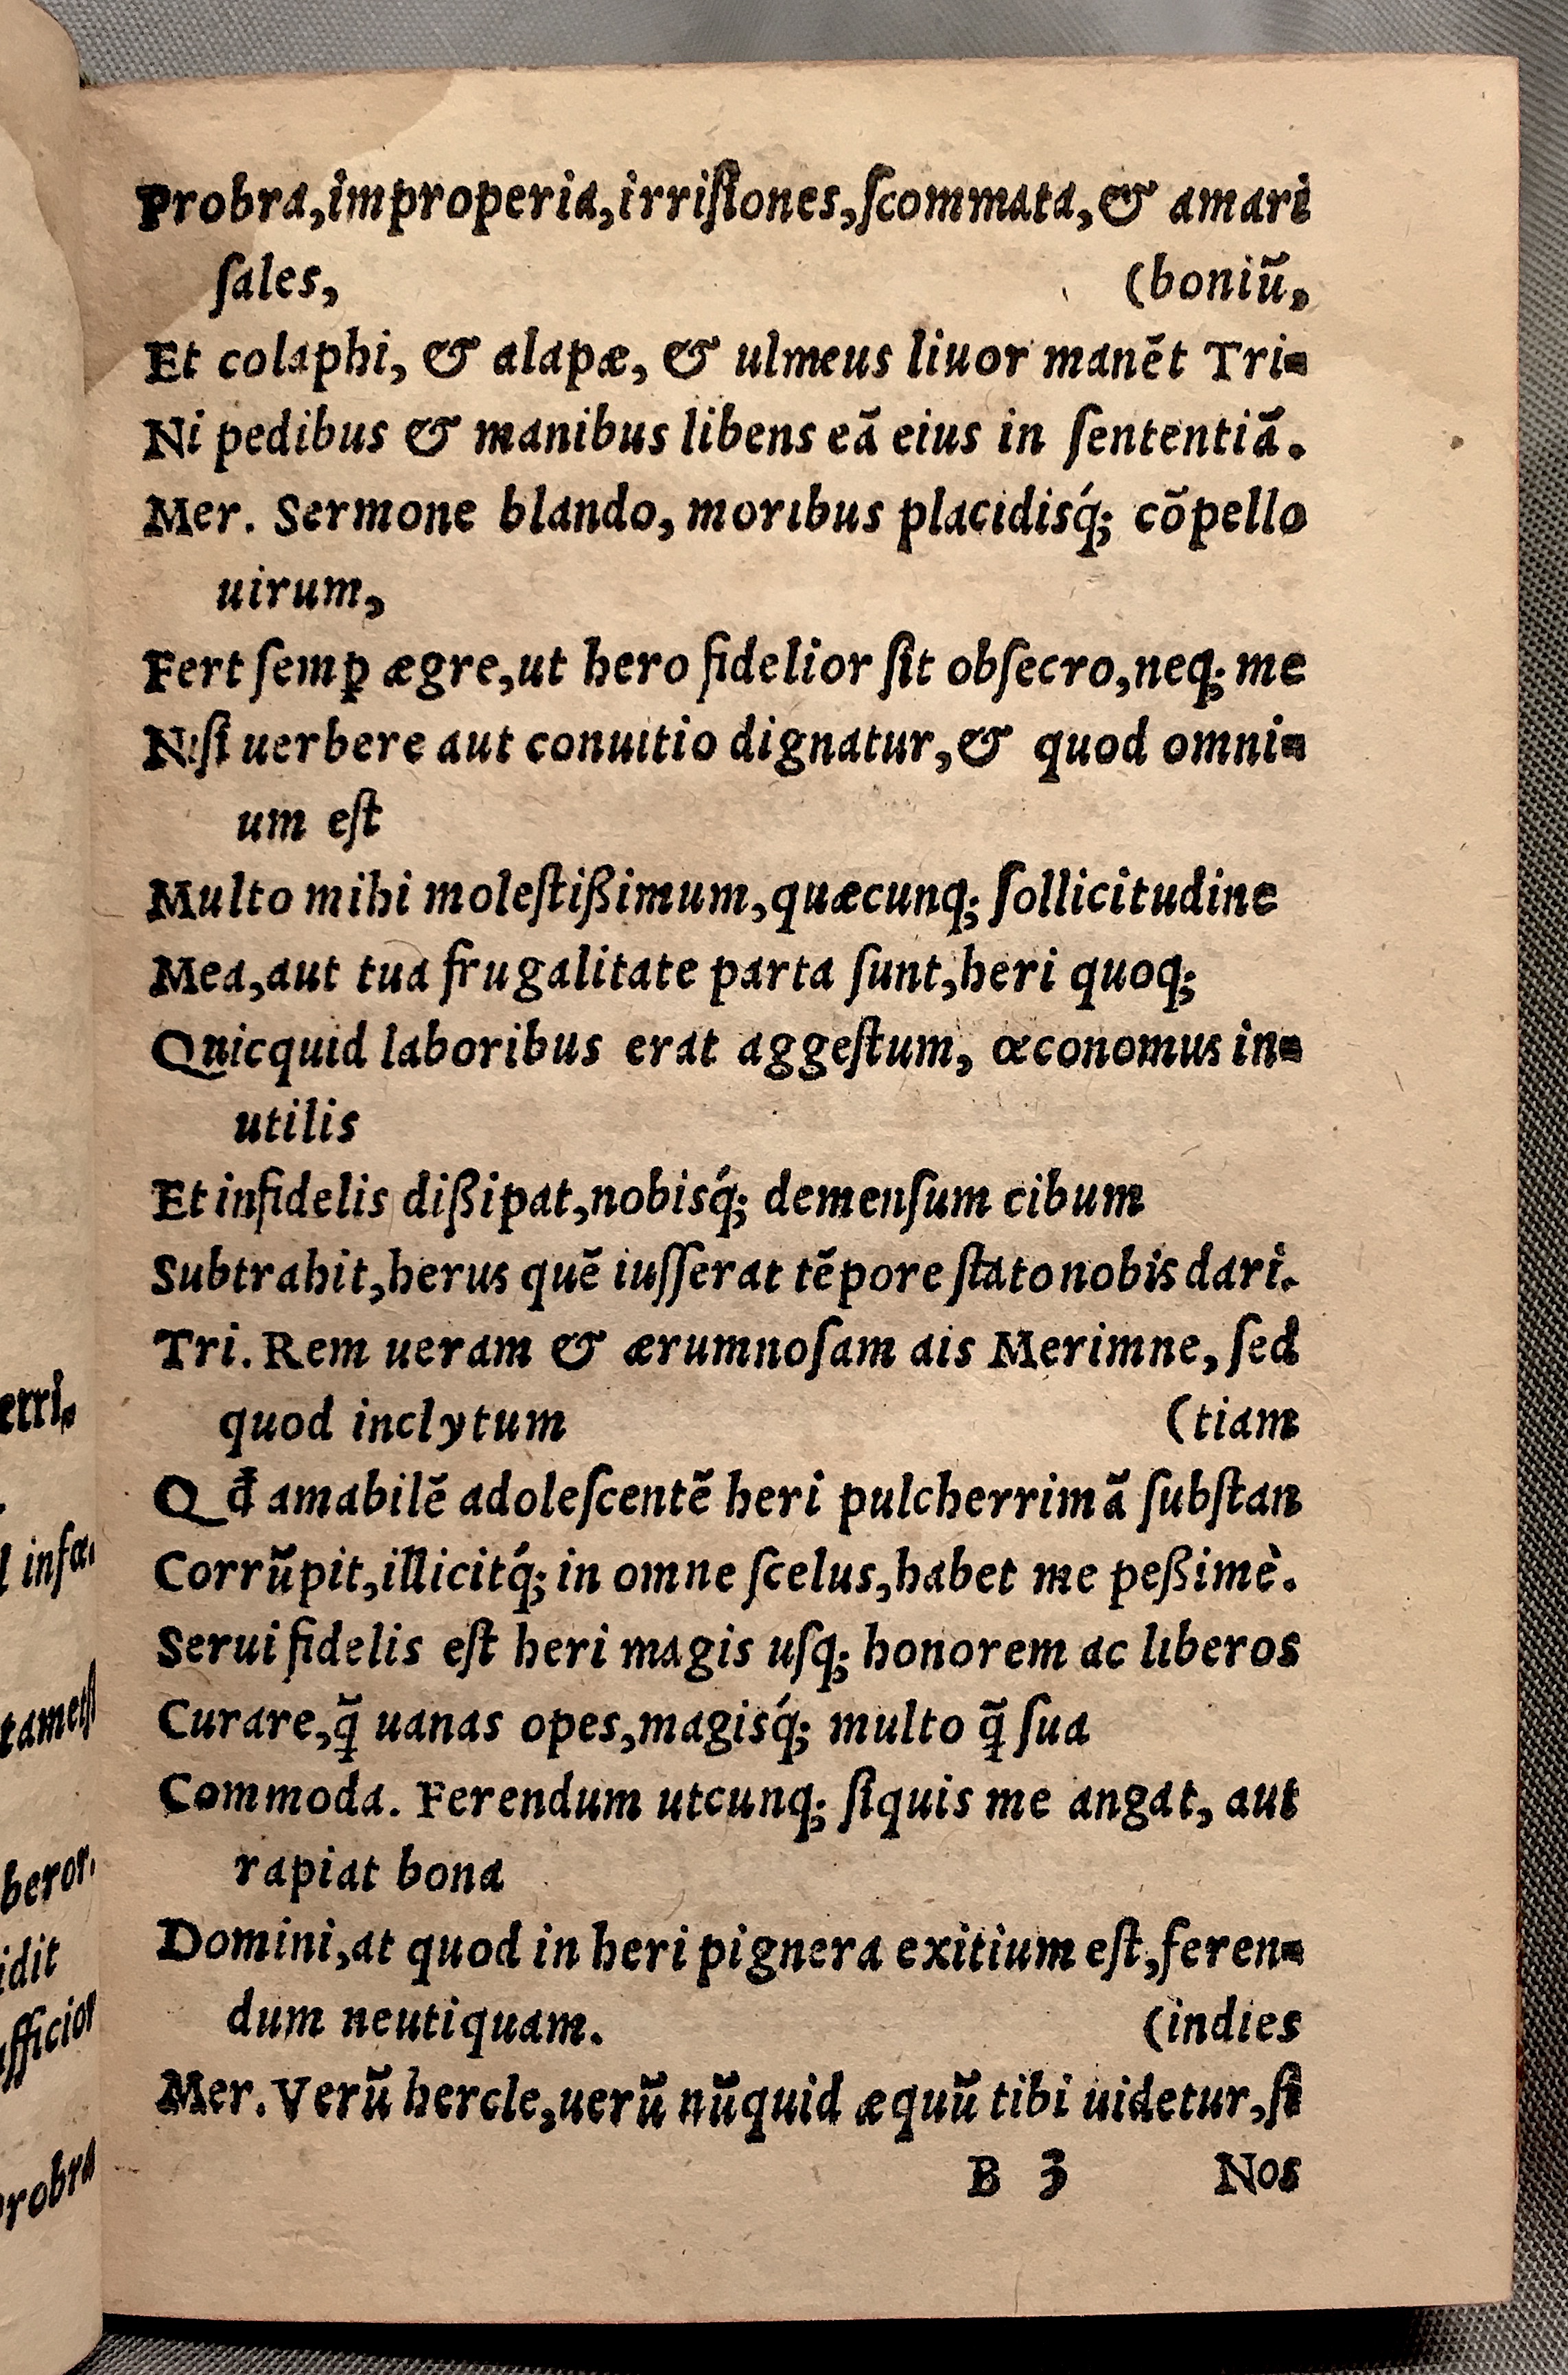 Probra,improperia,irriſiones,ſcommata,& amari
ſales, (boniũ,
Et colaphi, & alapæ, & ulmeus liuor manẽt Tri-
Ni pedibus & manibus libens eã eius in ſententiã.
Mer. Sermone blando, moribus placidisq́; cõpello
uirum,
Fert ſemꝑ ægre,ut hero fidelior ſit obſecro,neq; me
Niſi uerbere aut conuitio dignatur,& quod omni-
um eſt
Multo mihi moleſtißimum,quæcunq; ſollicitudine
Mea,aut tua frugalitate parta ſunt,heri quoq;
Quicquid laboribus erat aggeſtum, œconomus in-
utilis
Et infidelis dißipat,nobisq́; demenſum cibum
Subtrahit,herus quẽ iuſſerat tẽpore ſtato nobis dari.
Tri. Rem ueram & ærumnoſam ais Merimne, ſed
quod inclytum (tiam
Qđ amabilẽ adoleſcentẽ heri pulcherrimã ſubſtan
Corrũpit,illicitq́; in omne ſcelus,habet me peßimè.
Serui fidelis eſt heri magis uſq; honorem ac liberos
Curare,q̃ uanas opes,magisq́; multo q̃ ſua
Commoda. Ferendum utcunq; ſiquis me angat, aut
rapiat bona
Domini,at quod in heri pignera exitium eſt,feren-
dum neutiquam. (indies
Mer. Verũ hercle,uerũ nũquid æquũ tibi uidetur,ſi
B 3 Nos
erri.
l infœ
tametſi
beror.
idit
fficior
probra